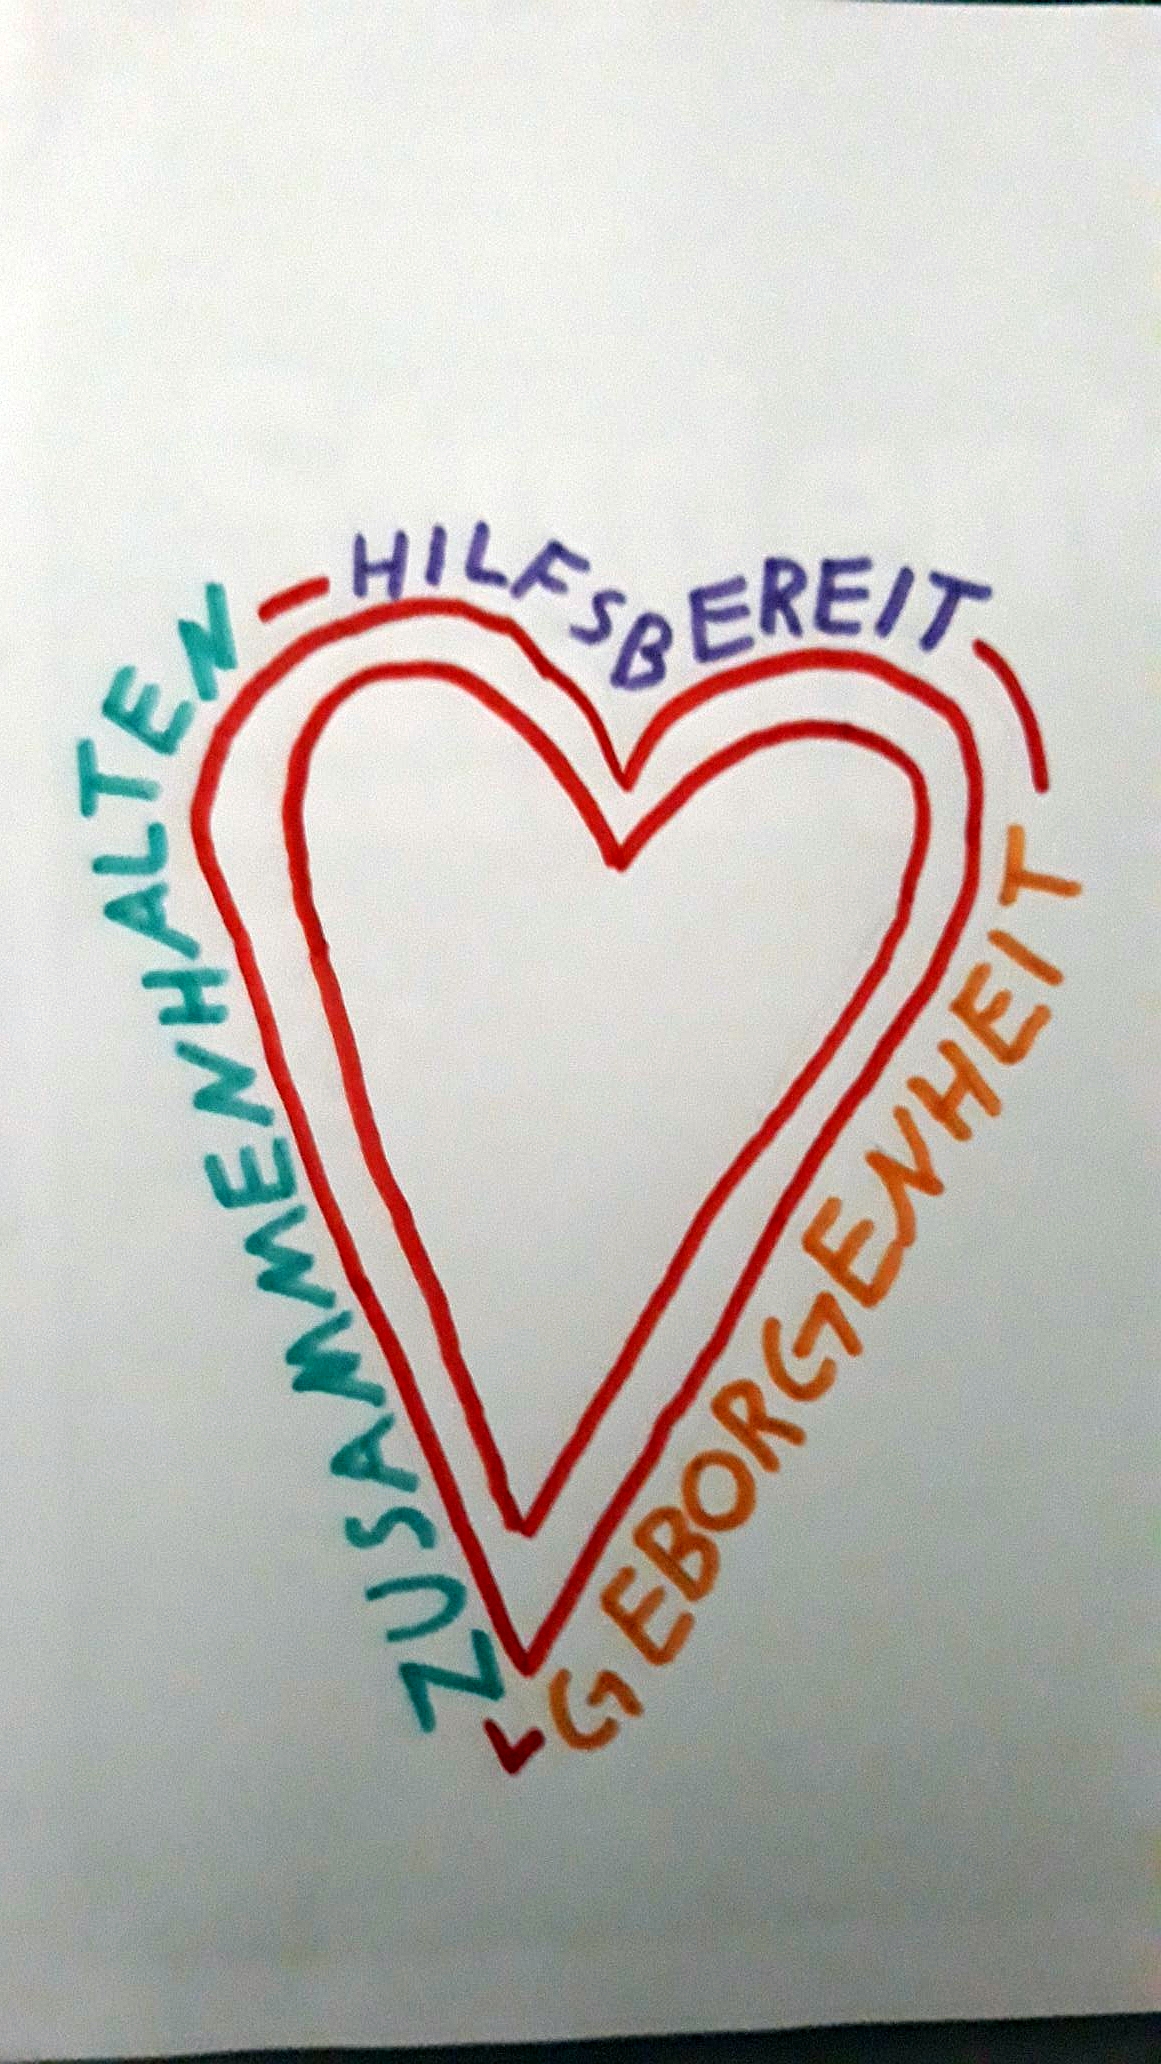 ZUSAMMENHALTEN
HILFSBEREIT
GEBORGENHEIT